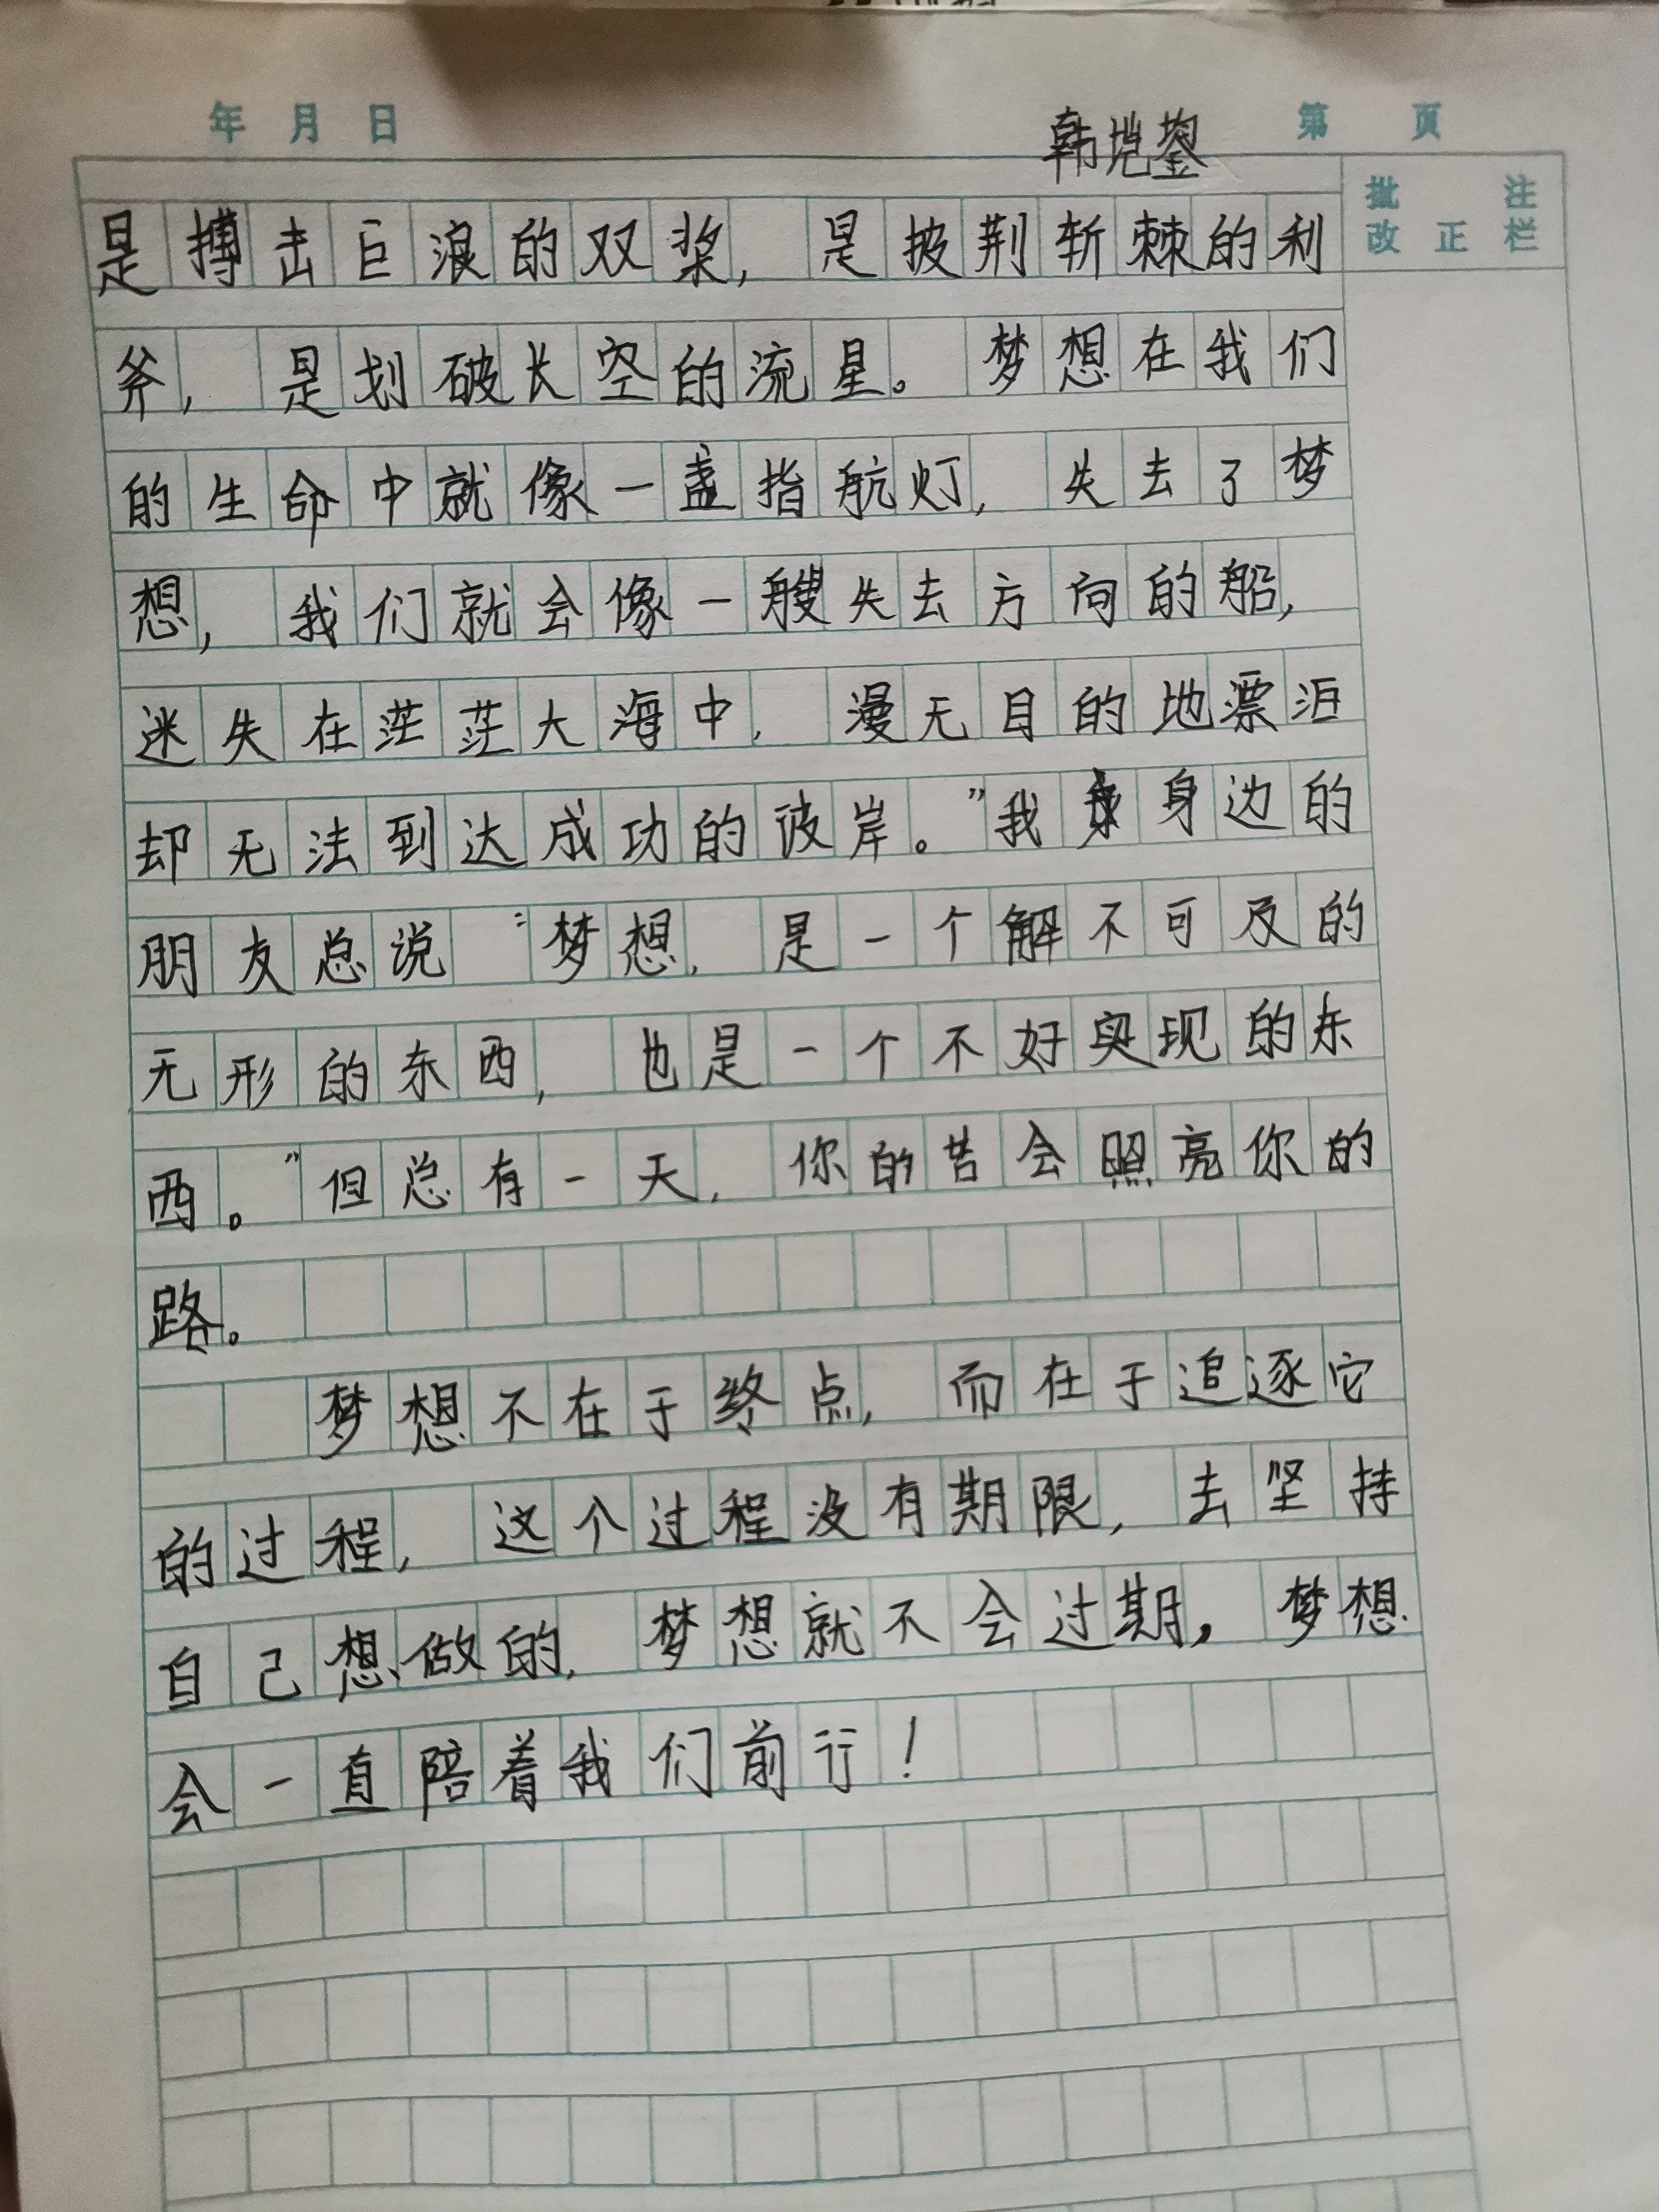 年 月 日 韩垲鋆 第 页
批 注
改 正 栏
是搏击巨浪的双桨，是披荆斩棘的利
斧，是划破长空的流星。梦想在我们
的生命中就像一盏指航灯，失去了梦
想，我们就会像一艘失去方向的船，
迷失在茫茫大海中，漫无目的地漂泊
却无法到达成功的彼岸。”我身边的
朋友总说“梦想，是一个解不可及的
无形的东西，也是一个不好实现的东
西。”但总有一天，你的苦会照亮你的
路。
梦想不在于终点，而在于追逐它
的过程，这个过程没有期限，去坚持
自己想做的，梦想就不会过期，梦想
会一直陪着我们前行！